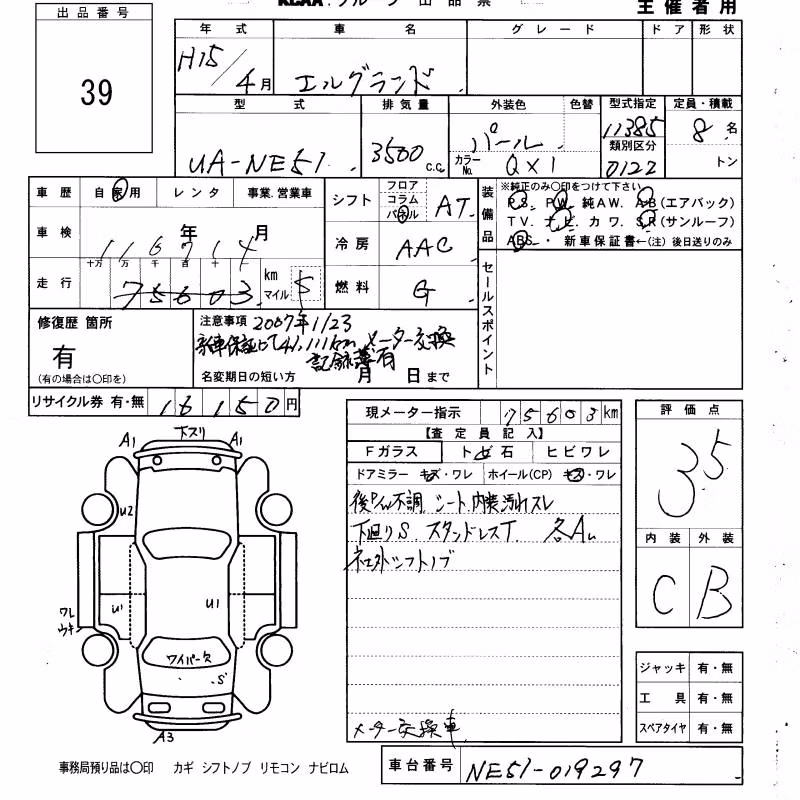 KCAA グループ 出品票
主催者用
出品番号
39
年式 車名 グレード ドア 形状
H15/4月 エルグランド
型式 排気量 外装色 色替 型式指定 定員・積載
UA-NE51 3500c.c. パール 11385 8名
カラーNo. QX1 類別区分 0122 トン
車歴 自家用 レンタ 事業.営業車
シフト フロア コラム パネル AT
装備品 ※純正のみ〇印をつけて下さい
P.S. P.W. 純AW. A.B(エアバック)
TV. ナビ. カワ. S.R(サンルーフ)
ABS. ・ 新車保証書←(注) 後日送りのみ
車検 年 月
冷房 AAC
走行 十万 万 千 百 十 一 75603 km マイル S
燃料 G
セールスポイント
修復歴 箇所
有
(有の場合は〇印を)
注意事項 2007年1/23
41,111km メーター交換
記録簿有
名変期日の短い方 月 日まで
リサイクル券 有・無 16150円
現メーター指示 75603km
【査定員記入】
Fガラス トビ石 ヒビワレ
ドアミラー キズ・ワレ ホイール(CP) キズ・ワレ
後P/W不調 シート、内装汚れスレ
下廻りS スタンドレスT 各AU
社外シフトノブ
メーター交換車
評価点
3.5
内装 外装
C B
ジャッキ 有・無
工具 有・無
スペアタイヤ 有・無
A1 下スリ A1
U2
U1 U1
ワレ
ウキ
ワイパー欠
S
A3
事務局預り品は〇印 カギ シフトノブ リモコン ナビロム
車台番号 NE51-019297